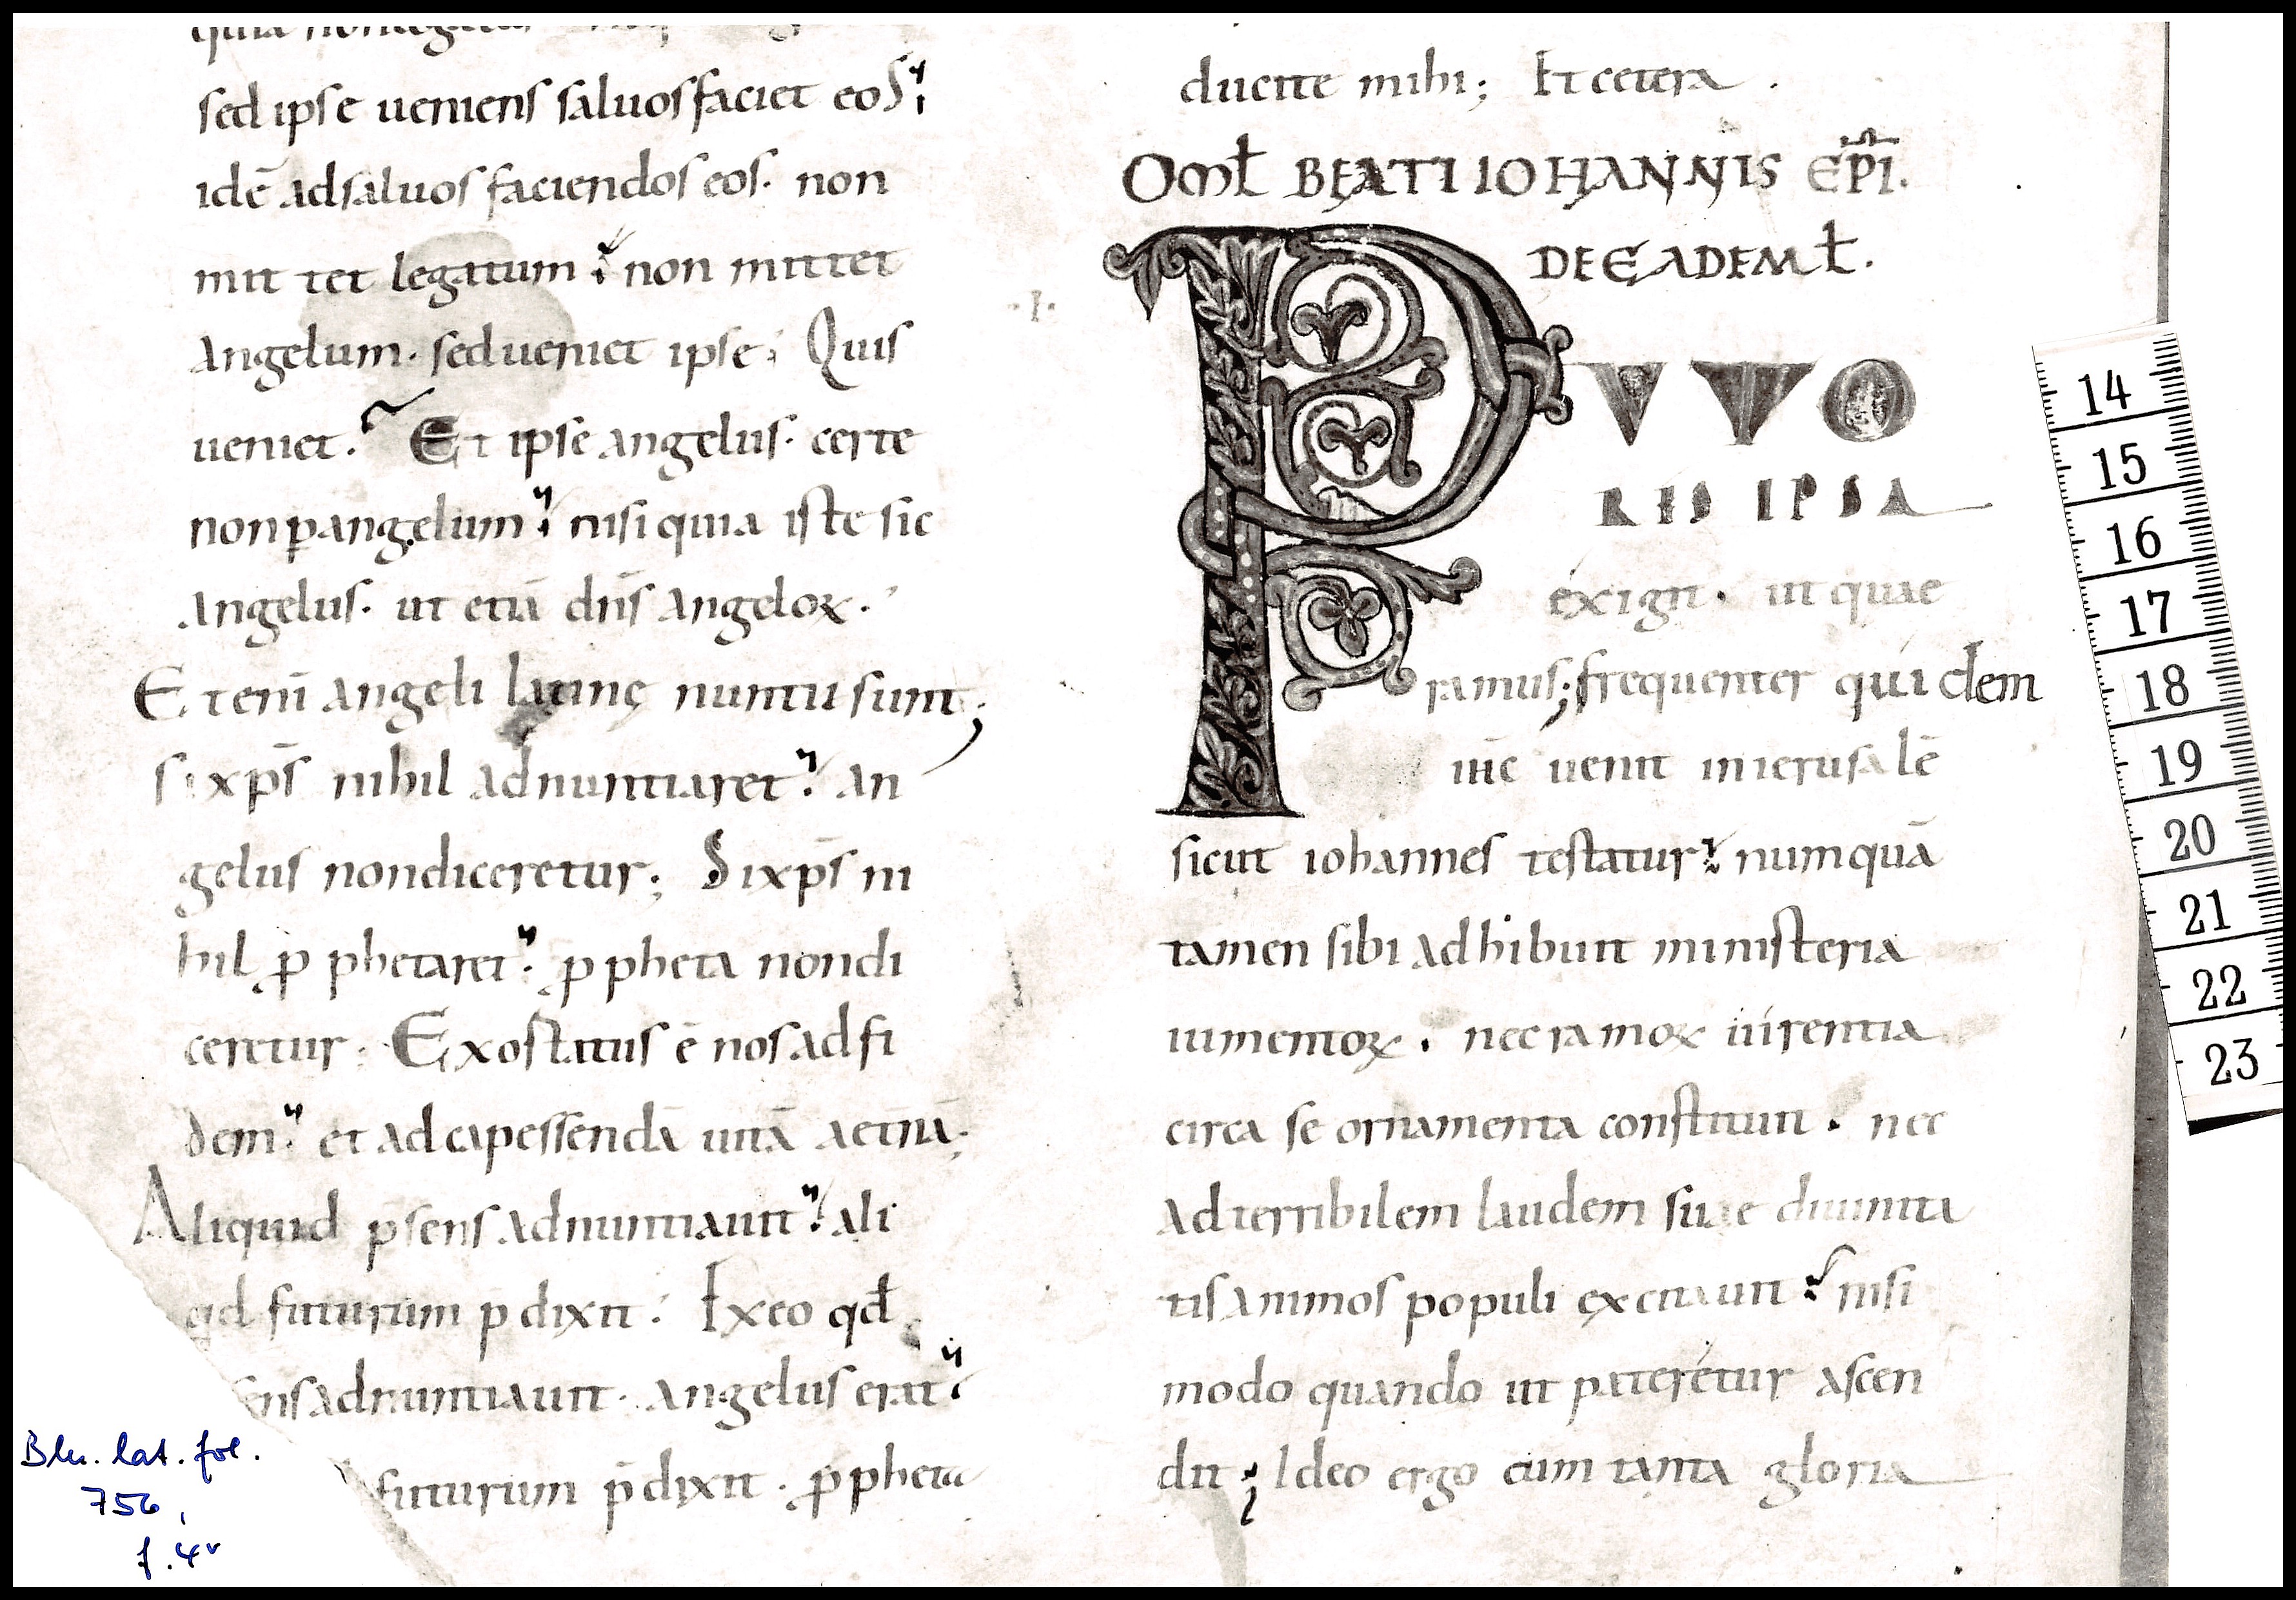 sed ipse ueniens saluos faciet eos;
idē ad saluos faciendos eos. non
mittet legatum; non mittet
angelum. sed ueniet ipse; Quis
ueniet? Et ipse angelus. certe
non ꝑ angelum; nisi quia iste sic
angelus. ut etiā dn̄s angeloꝝ.
Et enī angeli latine nuntii sunt;
si xp̄s nihil adnuntiaret; an
gelus non diceretur; Si xp̄s ni
hil ꝓphetaret; ꝓpheta non di
ceretur; Exostatus ē nos ad fi
dem; et ad capessendā uitā aet̄nā;
Aliquid p̄sens adnuntiauit; ali
qd futurum p̄dixit; Ex eo qđ
sens adnuntiauit. angelus erat;
futurum p̄dixit. ꝓpheta
ducite mihi; Et cetera.
OMƚ BEATI IOHANNIS EP̄I.
DE EADEM ƚ.
PUTO
RIS IPSA
éxigit. ut quae
ramus; frequenter quidem
ihc̄ uenit in ierusalē
sicut iohannes testatur; numquā
tamen sibi adhibuit ministeria
iumentoꝝ. nec ramoꝝ uirentia
circa se ornamenta constituit. nec
ad terribilem laudem suae diuinita
tis animos populi excitauit; nisi
modo quando ut pateretur ascen
dit; Ideo ergo cum tanta gloria
Bln. lat. fol.
756,
f. 4v
14
15
16
17
18
19
20
21
22
23